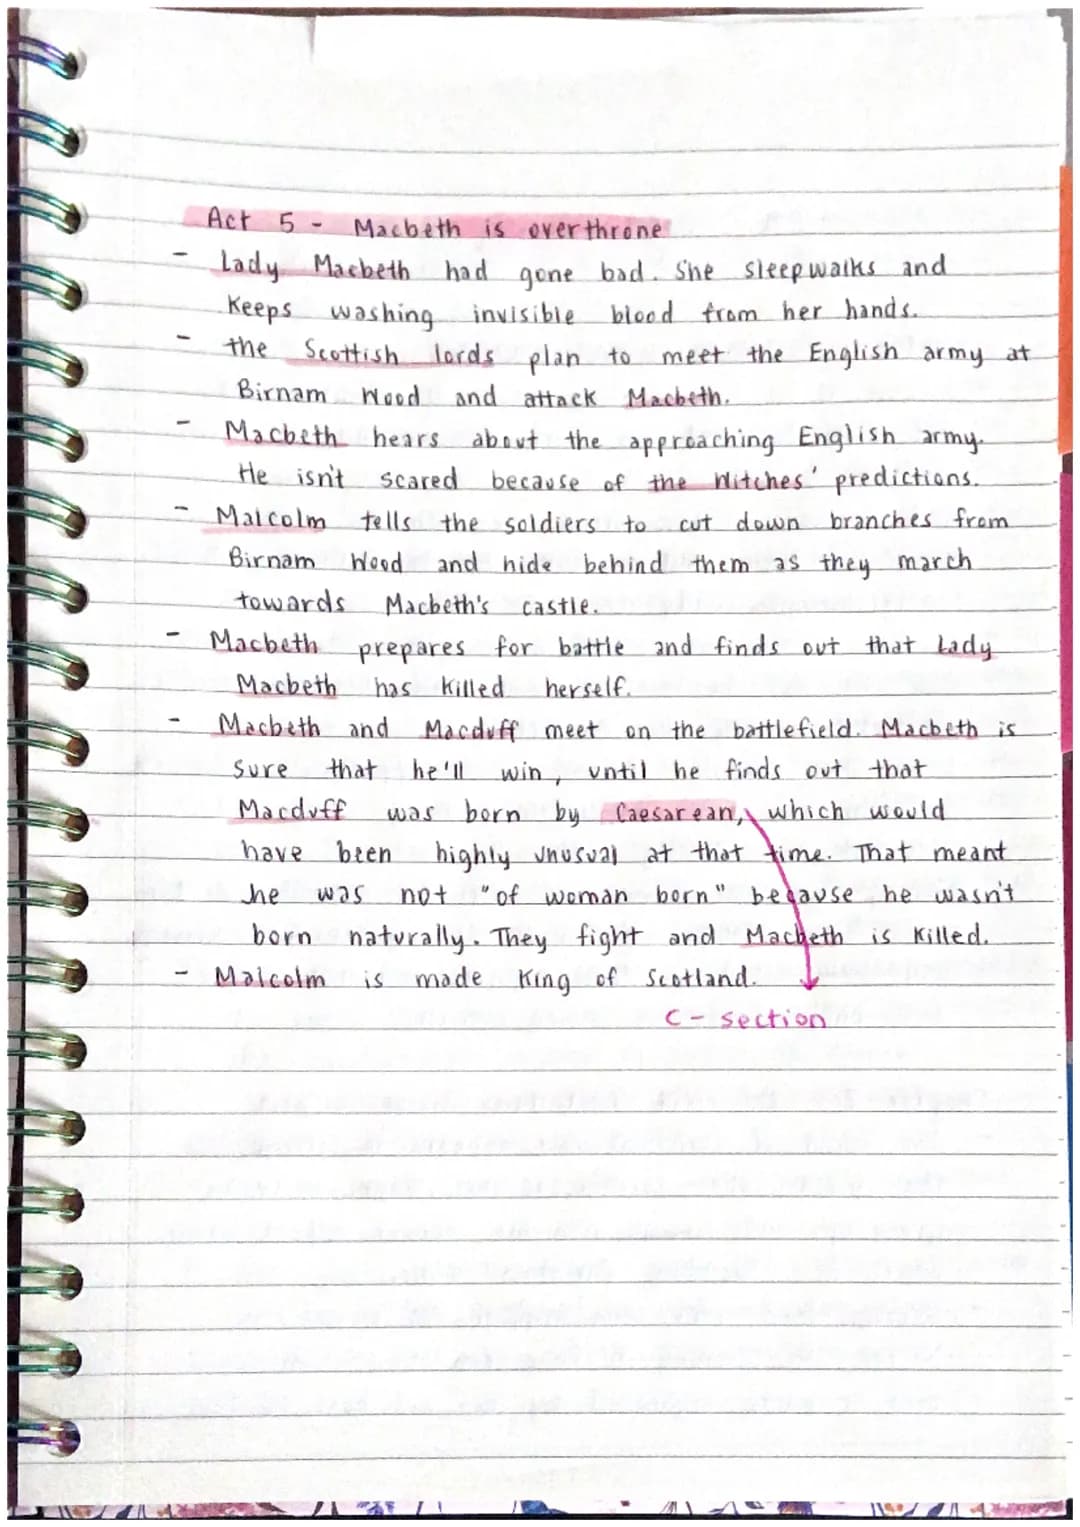 Act 5 - Macbeth is overthrone
- Lady Macbeth had gone bad. She sleepwalks and
keeps washing invisible blood from her hands.
- the Scottish lords plan to meet the English army at
Birnam Wood and attack Macbeth.
- Macbeth hears about the approaching English army.
He isn't scared because of the Witches' predictions.
- Malcolm tells the soldiers to cut down branches from
Birnam Wood and hide behind them as they march
towards Macbeth's castle.
- Macbeth prepares for battle and finds out that Lady
Macbeth has killed herself.
- Macbeth and Macduff meet on the battlefield. Macbeth is
sure that he'll win, until he finds out that
Macduff was born by Caesarean, which would
have been highly unusual at that time. That meant
he was not "of woman born" because he wasn't
born naturally. They fight and Macbeth is killed.
- Malcolm is made King of Scotland.
C-section